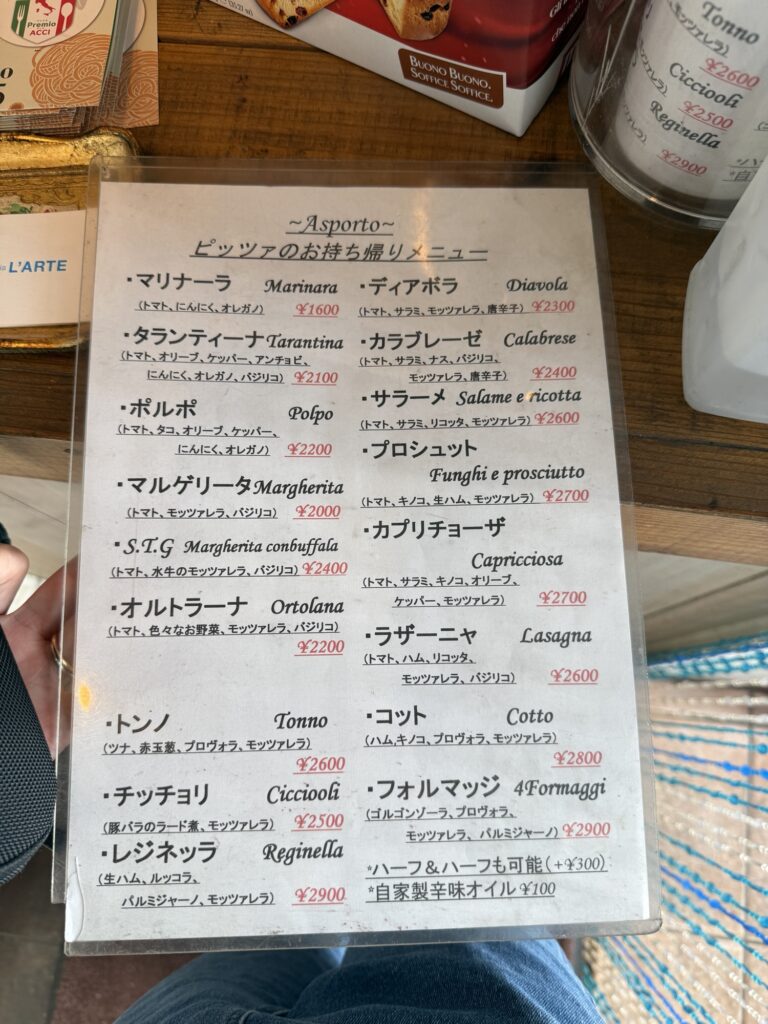 Premio
ACCI
BUONO BUONO,
SOFFICE SOFFICE.
Tonno
¥2600
Ciccioli
¥2500
Reginella
¥2900
L'ARTE
~Asporto~
ピッツァのお持ち帰りメニュー
・マリナーラ Marinara
(トマト、にんにく、オレガノ) ¥1600
・タランティーナ Tarantina
(トマト、オリーブ、ケッパー、アンチョビ、
にんにく、オレガノ、バジリコ) ¥2100
・ポルポ Polpo
(トマト、タコ、オリーブ、ケッパー、
にんにく、オレガノ) ¥2200
・マルゲリータ Margherita
(トマト、モッツァレラ、バジリコ) ¥2000
・S.T.G Margherita conbuffala
(トマト、水牛のモッツァレラ、バジリコ) ¥2400
・オルトラーナ Ortolana
(トマト、色々なお野菜、モッツァレラ、バジリコ)
¥2200
・トンノ Tonno
(ツナ、赤玉葱、プロヴォラ、モッツァレラ)
¥2600
・チッチョリ Ciccioli
(豚バラのラード煮、モッツァレラ) ¥2500
・レジネッラ Reginella
(生ハム、ルッコラ、
パルミジャーノ、モッツァレラ) ¥2900
・ディアボラ Diavola
(トマト、サラミ、モッツァレラ、唐辛子) ¥2300
・カラブレーゼ Calabrese
(トマト、サラミ、ナス、バジリコ、
モッツァレラ、唐辛子) ¥2400
・サラーメ Salame e ricotta
(トマト、サラミ、リコッタ、モッツァレラ) ¥2600
・プロシュット
Funghi e prosciutto
(トマト、キノコ、生ハム、モッツァレラ) ¥2700
・カプリチョーザ
Capricciosa
(トマト、サラミ、キノコ、オリーブ、
ケッパー、モッツァレラ) ¥2700
・ラザーニャ Lasagna
(トマト、ハム、リコッタ、
モッツァレラ、バジリコ) ¥2600
・コット Cotto
(ハム、キノコ、プロヴォラ、モッツァレラ)
¥2800
・フォルマッジ 4Formaggi
(ゴルゴンゾーラ、プロヴォラ、
モッツァレラ、パルミジャーノ) ¥2900
*ハーフ&ハーフも可能(+¥300)
*自家製辛味オイル ¥100